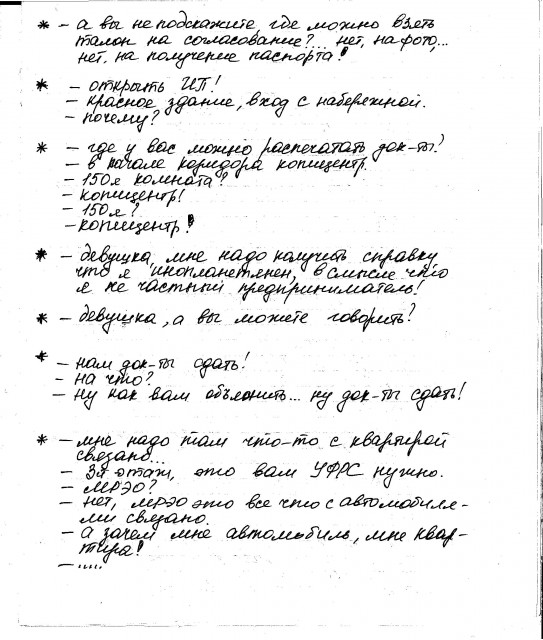 * – а вы не подскажите, где можно взять
талон на согласование?... нет, на фото,...
нет, на получение паспорта!
* – открыть ИП!
– красное здание, вход с набережной.
– почему?
* – где у вас можно распечатать док-ты?
– в начале коридора копицентр.
– 150я комната?
– копицентр!
– 150я?
– копицентр!
* – девушка, мне надо получить справку
что я инопланетянен, в смысле что
я не частный предприниматель!
* – девушка, а вы можете говорить?
* – нам док-ты сдать!
– на что?
– ну как вам объяснить... ну док-ты сдать!
* – мне надо там что-то с квартирой
связано...
– 3й этаж, это вам УФРС нужно.
– МРЭО?
– нет, МРЭО это все что с автомобиля-
ми связано.
– а зачем мне автомобиль, мне квар-
тира!
– .....